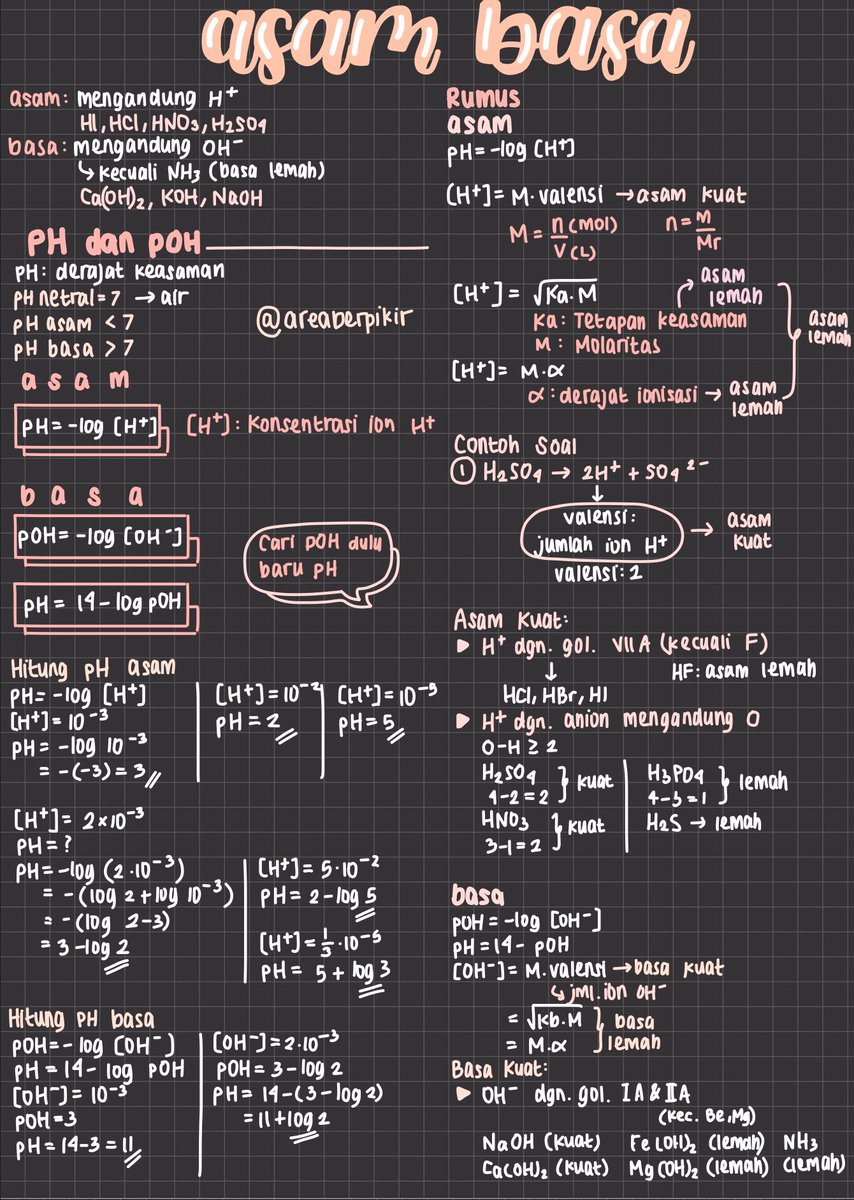 asam basa
asam: mengandung H⁺
HI, HCl, HNO₃, H₂SO₄
basa: mengandung OH⁻
↳ kecuali NH₃ (basa lemah)
Ca(OH)₂, KOH, NaOH
PH dan pOH
pH: derajat keasaman
pH netral = 7 → air
pH asam < 7
pH basa > 7
@areaberpikir
asam
pH = -log [H⁺]
[H⁺]: Konsentrasi ion H⁺
basa
pOH = -log [OH⁻]
pH = 14 - log pOH
Cari pOH dulu
baru pH
Hitung pH asam
pH = -log [H⁺]
[H⁺] = 10⁻³
pH = -log 10⁻³
= -(-3) = 3
[H⁺] = 10⁻²
pH = 2
[H⁺] = 10⁻⁵
pH = 5
[H⁺] = 2×10⁻³
pH = ?
pH = -log (2·10⁻³)
= -(log 2 + log 10⁻³)
= -(log 2-3)
= 3 - log 2
[H⁺] = 5·10⁻²
pH = 2 - log 5
[H⁺] = 1/3·10⁻⁵
pH = 5 + log 3
Hitung PH basa
pOH = -log [OH⁻]
pH = 14 - log pOH
[OH⁻] = 10⁻³
pOH = 3
pH = 14-3 = 11
[OH⁻] = 2·10⁻³
pOH = 3 - log 2
pH = 14 - (3 - log 2)
= 11 + log 2
Rumus
asam
pH = -log [H⁺]
[H⁺] = M. valensi → asam kuat
M = n (mol) / V (L)
n = m / Mr
[H⁺] = √Ka.M
asam
lemah
Ka: Tetapan keasaman
M: Molaritas
[H⁺] = M.α
α: derajat ionisasi → asam
lemah
asam
lemah
Contoh Soal
① H₂SO₄ → 2H⁺ + SO₄²⁻
valensi:
jumlah ion H⁺
→ asam
kuat
valensi: 2
Asam Kuat:
▶ H⁺ dgn. gol. VII A (kecuali F)
HF: asam lemah
HCl, HBr, HI
▶ H⁺ dgn. anion mengandung O
O-H ≥ 2
H₂SO₄
4-2=2
kuat
HNO₃
3-1=2
kuat
H₃PO₄
4-3=1
lemah
H₂S → lemah
basa
pOH = -log [OH⁻]
pH = 14 - pOH
[OH⁻] = M. valensi → basa kuat
↳ jml. ion OH⁻
= √Kb.M
= M.α
basa
lemah
Basa Kuat:
▶ OH⁻ dgn. gol. IA & IIA
(kec. Be, Mg)
NaOH (kuat) Fe(OH)₂ (lemah) NH₃
Ca(OH)₂ (kuat) Mg(OH)₂ (lemah) (lemah)